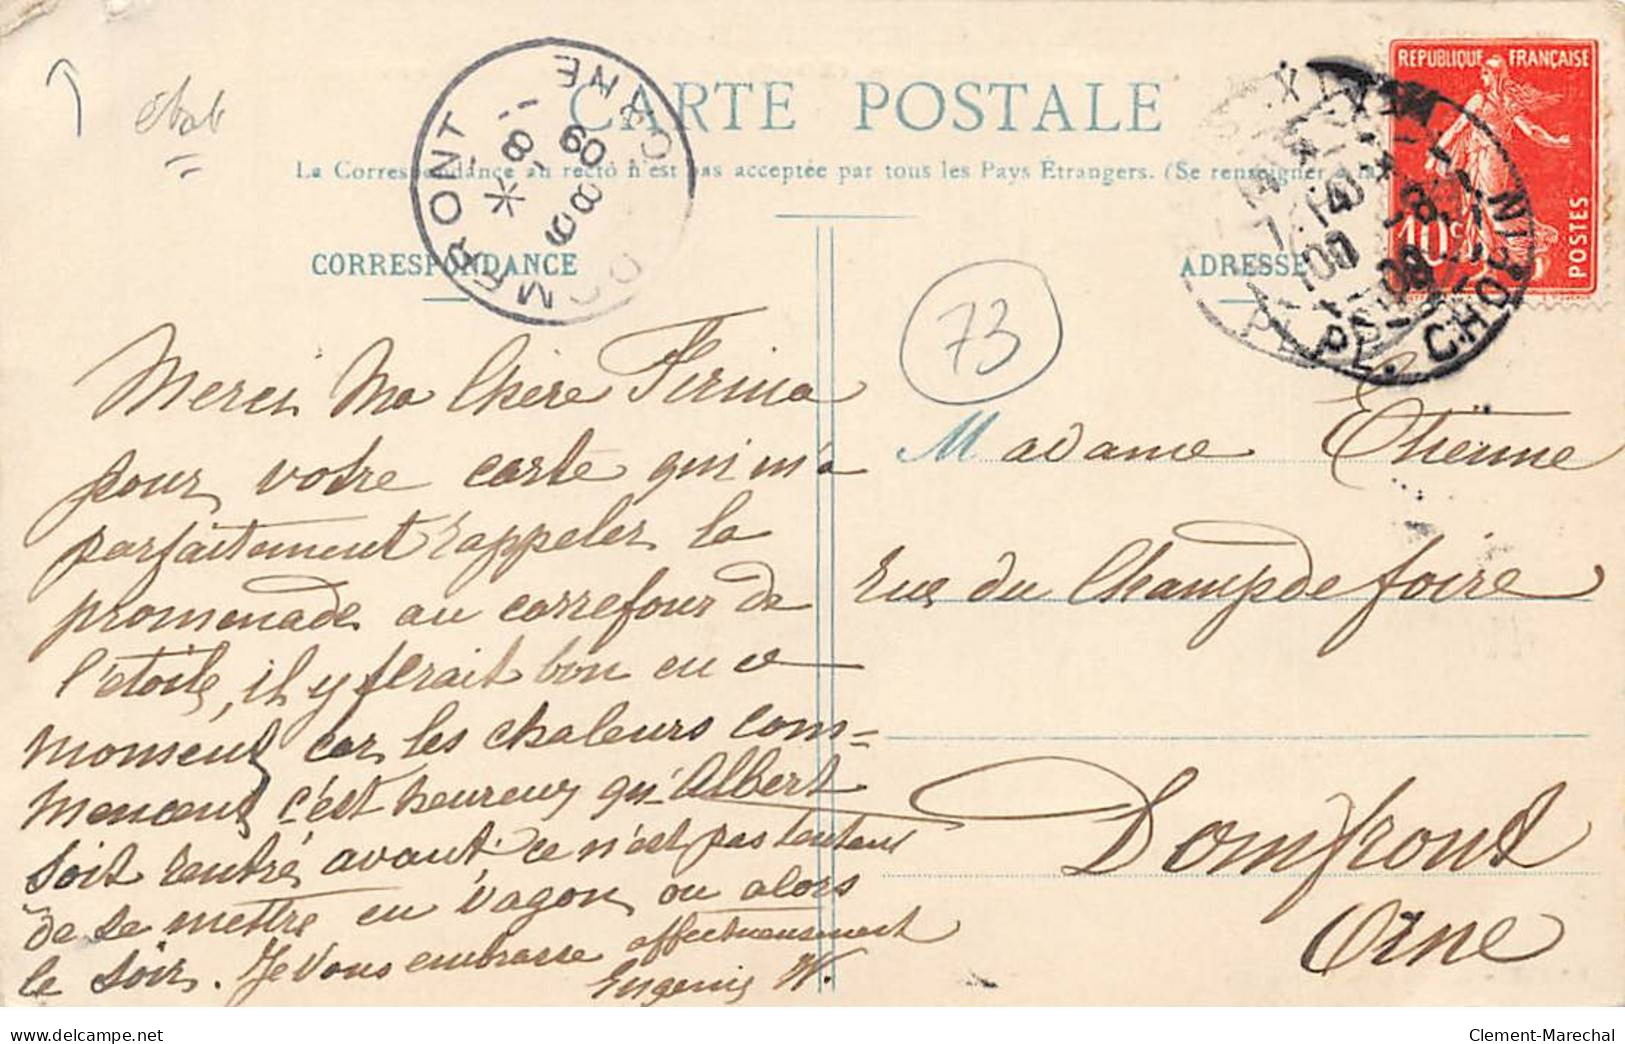 CARTE POSTALE
La Correspondance au recto n'est pas acceptée par tous les Pays Étrangers. (Se renseigner à la
CORRESPONDANCE
ADRESSE
REPUBLIQUE FRANÇAISE
10c
POSTES
DOMFRONT
ORNE
8
8
09
PL. CHOPIN
73
Merci Ma Chère Firma
pour votre carte qui m'a
parfaitement rappeler la
promenade au carrefour de
l'étoile, il y ferait bon en ce
moment car les chaleurs com=
mencent c'est heureux qu'Albert
soit rentré avant. ce n'est pas tentant
de se mettre en vagon ou alors
le soir. Je vous embrasse affectueusement
Eugenie W.
Madame Etienne
rue du Champ de foire
Domfront
Orne
delcampe.net
Clement-Marechal